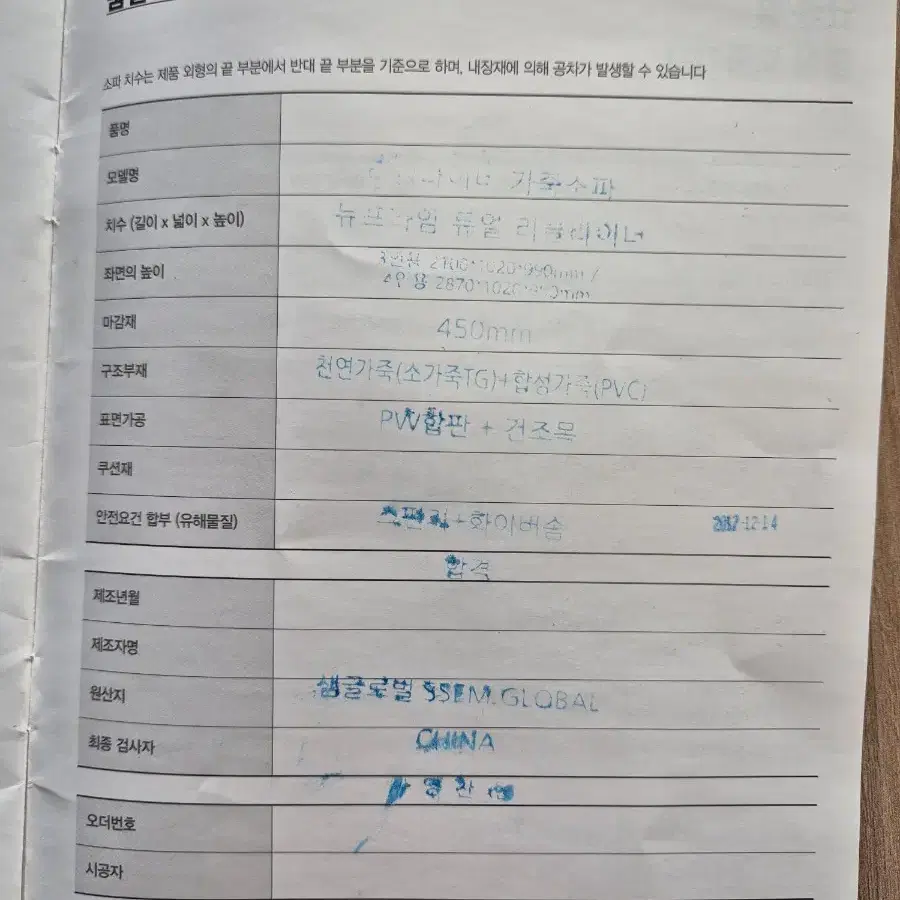 소파 치수는 제품 외형의 끝 부분에서 반대 끝 부분을 기준으로 하며, 내장재에 의해 공차가 발생할 수 있습니다
품명
모델명 가죽소파
치수 (길이 x 넓이 x 높이) 뉴프라임 듀얼 리클라이너
좌면의 높이 3인용 2100*1020*990mm /
4인용 2870*1020*990mm
마감재 450mm
구조부재 천연가죽(소가죽TG)+합성가죽(PVC)
표면가공 PVV합판 + 건조목
쿠션재
안전요건 합부 (유해물질) +화이버솜 12-14
합격
제조년월
제조자명
원산지 쌤글로벌 SSEM.GLOBAL
최종 검사자 CHINA
오더번호
시공자